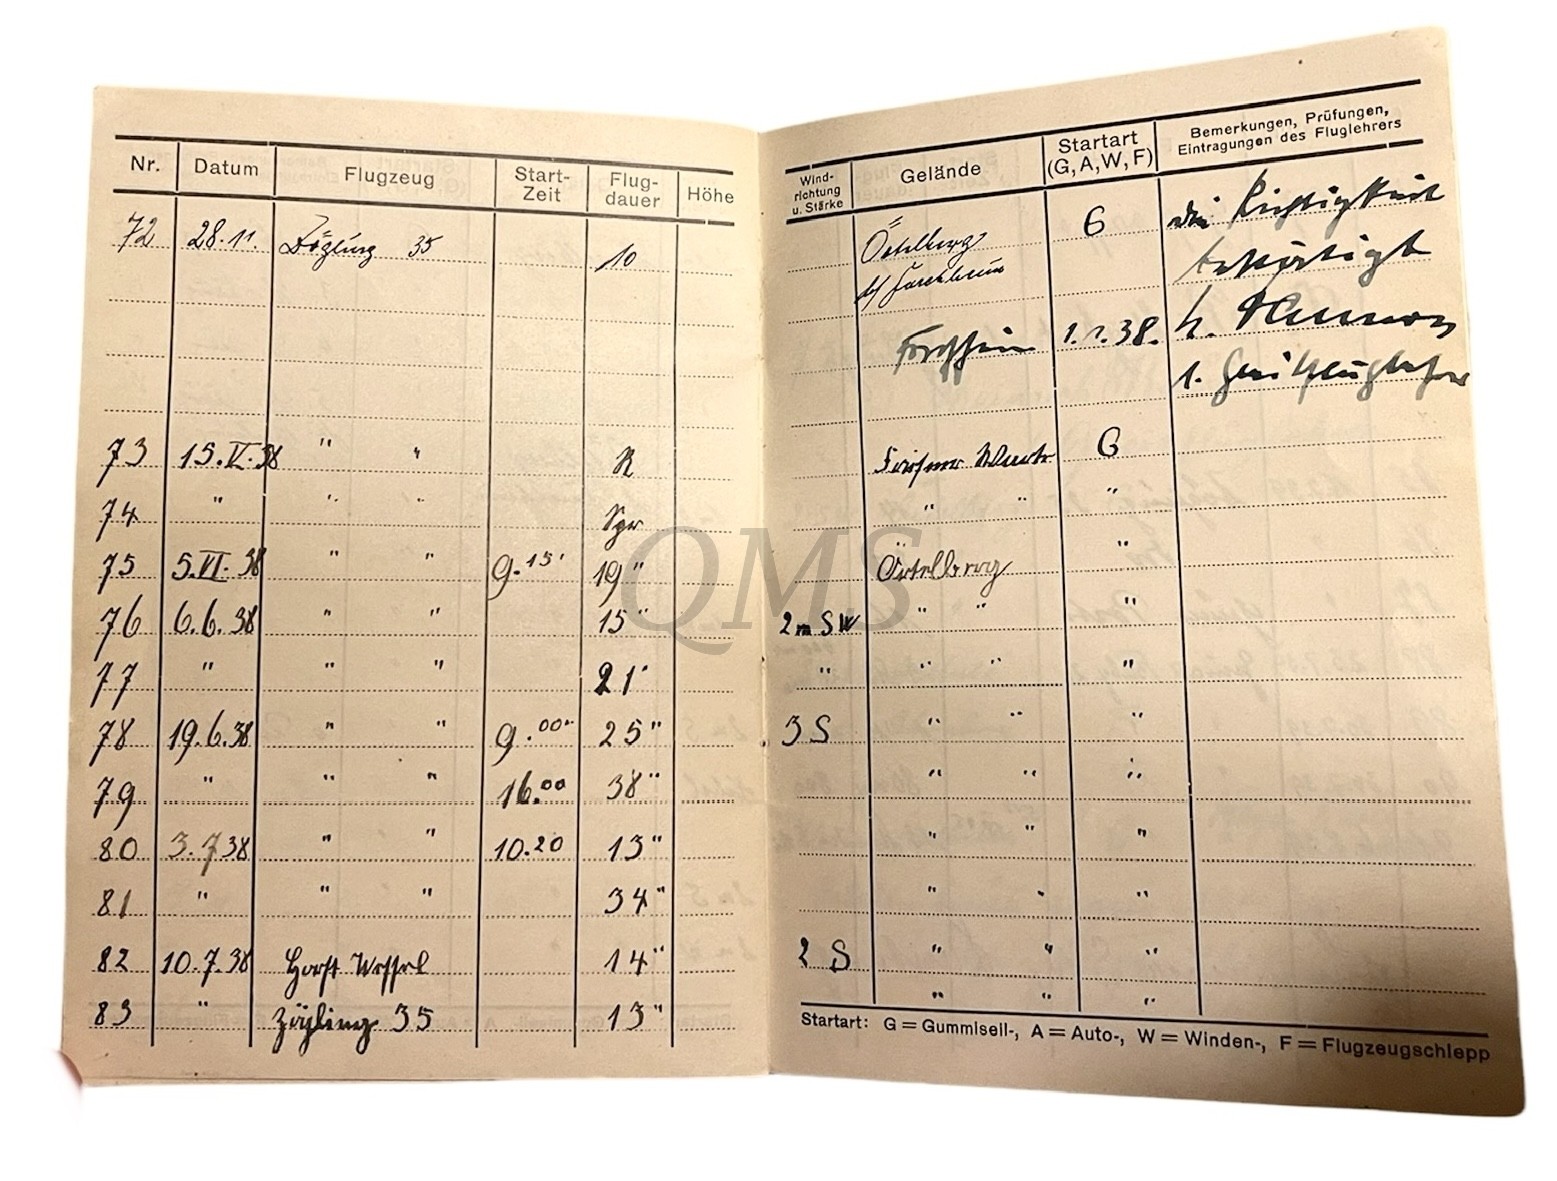 Nr. Datum Flugzeug Start-Zeit Flug-dauer Höhe
72 28.11. Zögling 35 10
73 15.V.38 " " R
74 " " " Spr
75 5.VI.38 " " 9.15' 19"
76 6.6.38 " " 15"
77 " " " 21"
78 19.6.38 " " 9.00 25"
79 " " " 16.00 38"
80 3.7.38 " " 10.20 13"
81 " " " 34"
82 10.7.38 Horst Wessel 14"
83 " Zögling 35 13"
Wind-richtung u. Stärke Gelände Startart (G, A, W, F) Bemerkungen, Prüfungen, Eintragungen des Fluglehrers
Örtelberg G die Richtigkeit
bestätigt
Forchheim 1.1.38. h.
1. Segelfluglehrer
G
" " "
Örtelberg "
2 m SW " " "
" " " "
3 S " " "
" " "
" " "
" " "
2 S " " "
" " "
Startart: G = Gummiseil-, A = Auto-, W = Winden-, F = Flugzeugschlepp
QMS